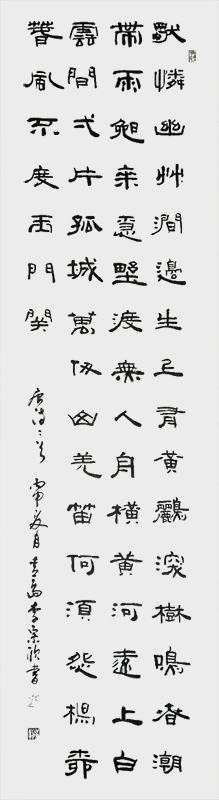 獨憐幽艸澗邊生上有黃鸝深樹鳴春潮
帶雨晚來急野渡無人自橫黃河遠上白
雲間弌片孤城萬仞山羌笛何須怨楊柳
春風不度玉門關
唐詩二首 夏月青島李宗欣書